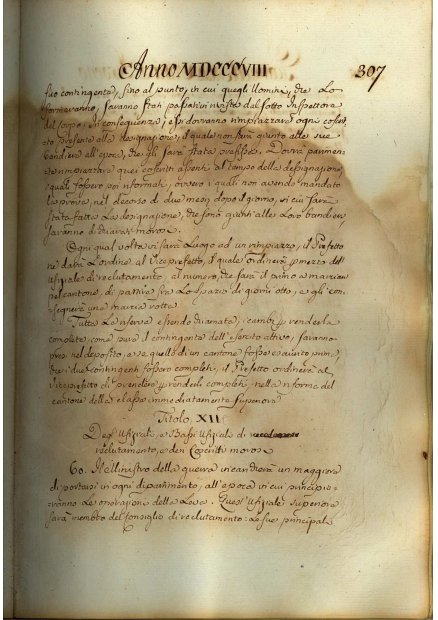 Anno MDCCCVIII 307
suo contingente, sino al punto, in cui quegli Uomini, che lo
formeranno, saranno stati passati in rivista dal sotto Inspettore
del corpo. In conseguenza, essi dovranno rimpiazzare ogni coscri-
tto presente alla designazione, il quale non sarà giunto alle sue
bandiere all'epoca, che gli sarà stata prefissa. Dovrà parimen-
te rimpiazzare quei coscritti assenti al tempo della designazione,
quali fossero poi riformati, ovvero i quali non avendo mandato
le prove, nel decorso di due mesi dopo il giorno, in cui sarà
stata fatta la designazione, che sono giunti alle loro bandiere,
saranno dichiarati morosi.
Ogni qual volta vi sarà luogo ad un rimpiazzo, il Prefetto
ne darà l'ordine al Viceprefetto, il quale ordinerà per mezzo del
Ufiziale di reclutamento, al numero, che sarà il primo a marciare
nel cantone, di partire fra lo spazio di giorni otto, e gli con-
segnerà una marcia rotta.
Tutta la riserva essendo chiamata, i cambj per renderla
completa come pure il contingente dell'esercito attivo, saranno
presi nel deposito, e se quello di un cantone fosse esaurito prima,
che i due contingenti fossero completi, il Prefetto ordinerà al
Viceprefetto di prenderli per renderli completi, nella riforme del
cantone della classe immediatamente superiore
Titolo XII
Degl'Ufiziali, e Bassi Ufiziali di
reclutamento, e dei Coscritti morosi
60. Il Ministro della guerra incaricherà un maggiore
di portarsi in ogni dipartimento, all'epoca in cui principie-
ranno le operazioni della Leva. Quest'Ufiziale superiore
sarà membro del consiglio di reclutamento: Le sue principali